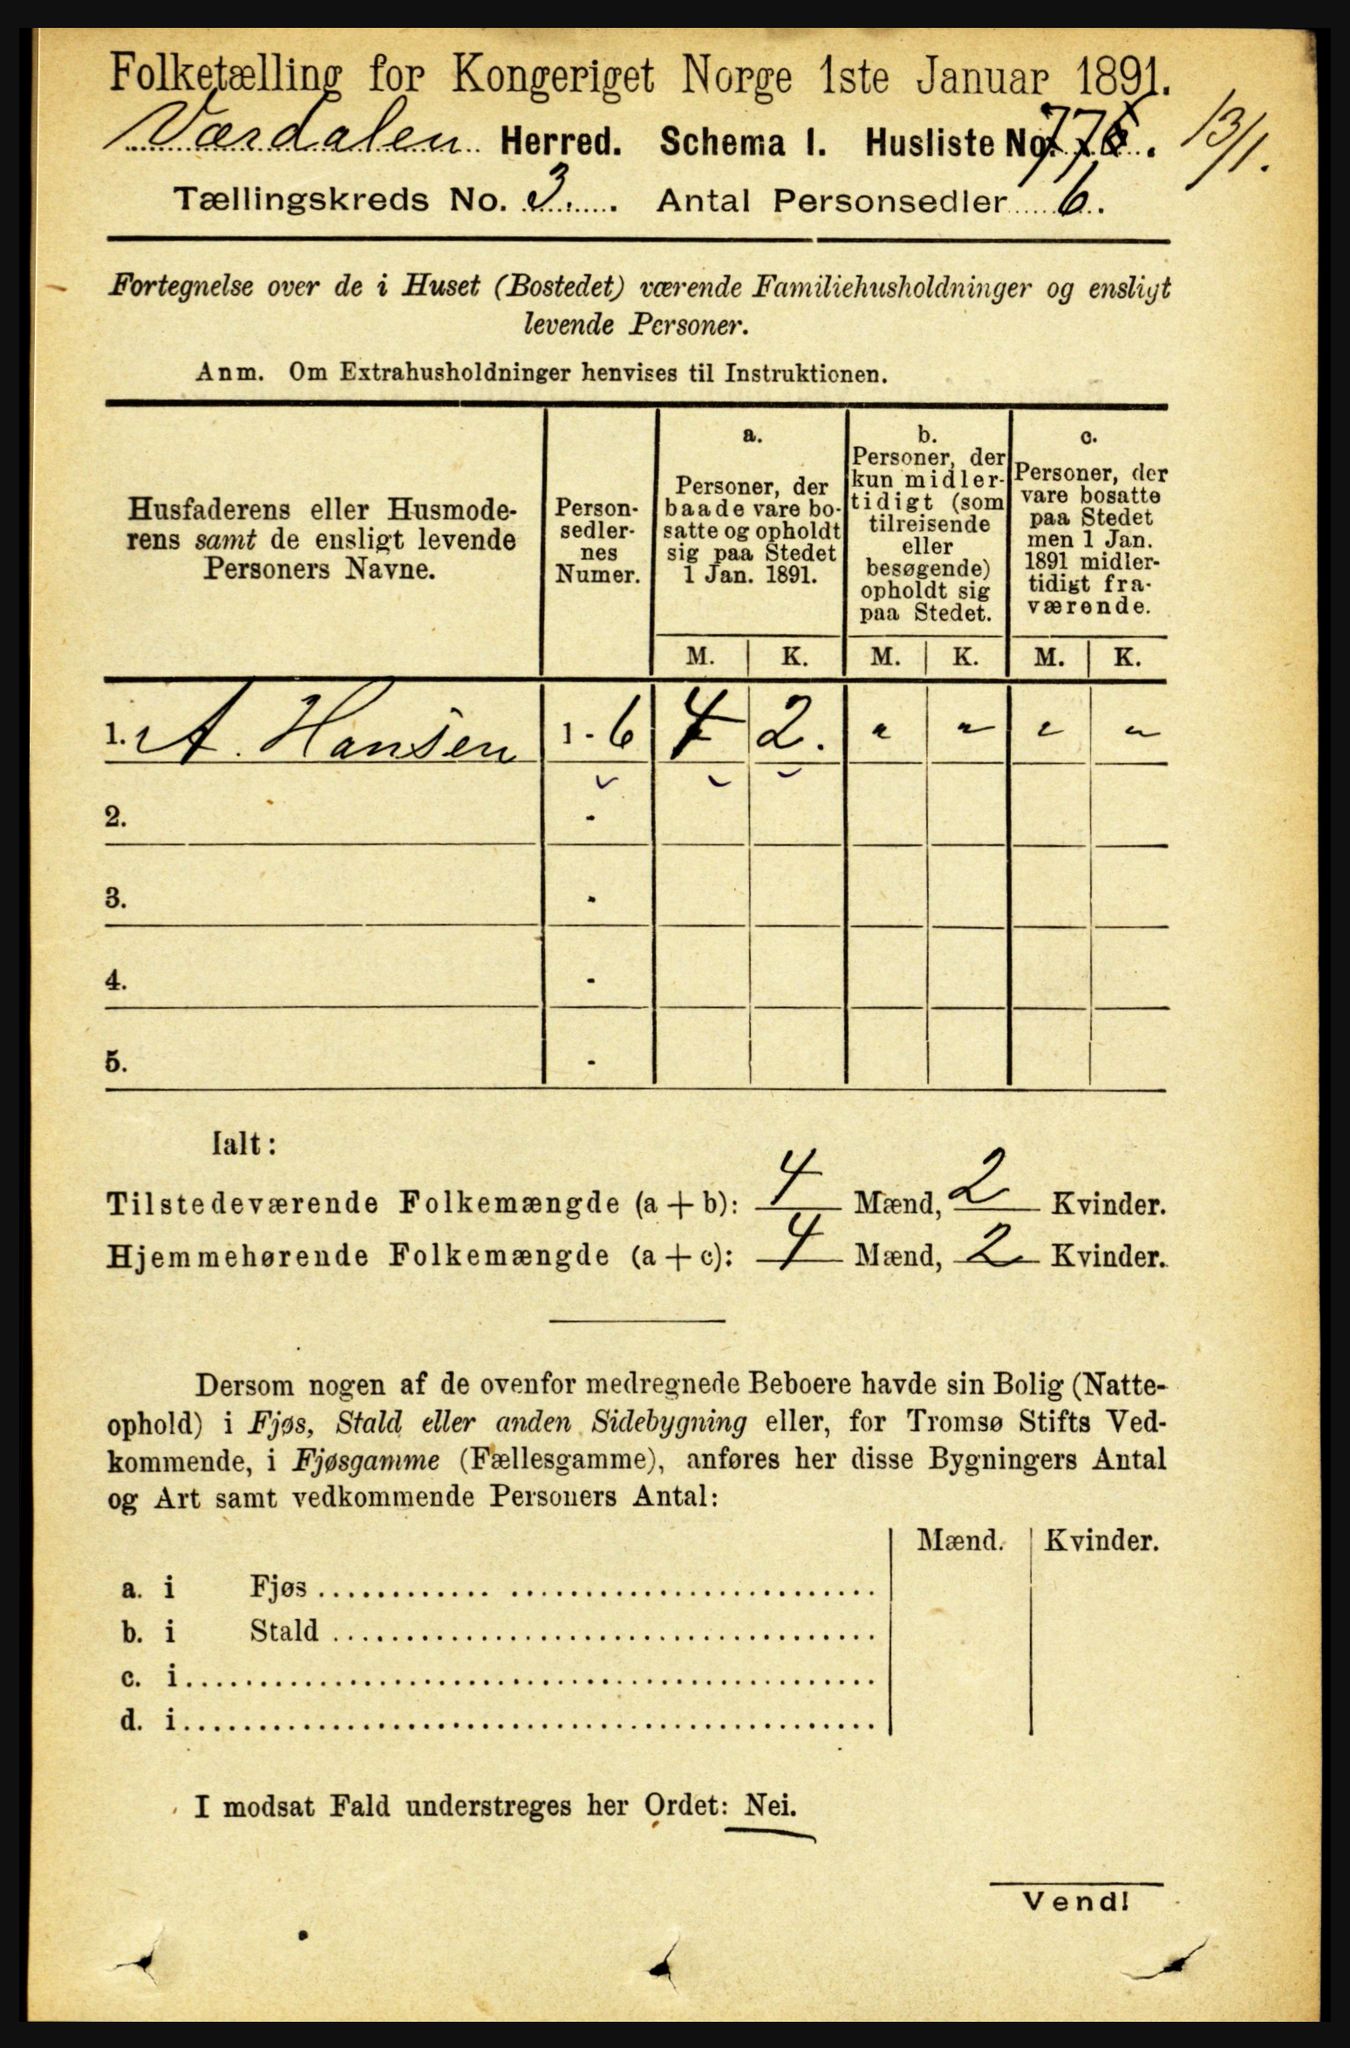 Folketælling for Kongeriget Norge 1ste Januar 1891.
Værdalen Herred. Schema I. Husliste No. 13/1.
Tællingskreds No. 3. Antal Personsedler 6.
Fortegnelse over de i Huset (Bostedet) værende Familiehusholdninger og ensligt
levende Personer.
Anm. Om Extrahusholdninger henvises til Instruktionen.
Husfaderens eller Husmode-
rens samt de ensligt levende
Personers Navne.
Person-
sedler-
nes
Numer.
a.
Personer, der
baade vare bo-
satte og opholdt
sig paa Stedet
1 Jan. 1891.
b.
Personer, der
kun midler-
tidigt (som
tilreisende
eller
besøgende)
opholdt sig
paa Stedet.
c.
Personer, der
vare bosatte
paa Stedet
men 1 Jan.
1891 midler-
tidigt fra-
værende.
M. K. M. K. M. K.
1. A. Hansen 1 - 6 4 2. " " " "
2. -
3. -
4. -
5. -
Ialt:
Tilstedeværende Folkemængde (a + b): 4 Mænd, 2 Kvinder.
Hjemmehørende Folkemængde (a + c): 4 Mænd, 2 Kvinder.
Dersom nogen af de ovenfor medregnede Beboere havde sin Bolig (Natte-
ophold) i Fjøs, Stald eller anden Sidebygning eller, for Tromsø Stifts Ved-
kommende, i Fjøsgamme (Fællesgamme), anføres her disse Bygningers Antal
og Art samt vedkommende Personers Antal:
Mænd. Kvinder.
a. i Fjøs
b. i Stald
c. i
d. i
I modsat Fald understreges her Ordet: Nei.
Vend!